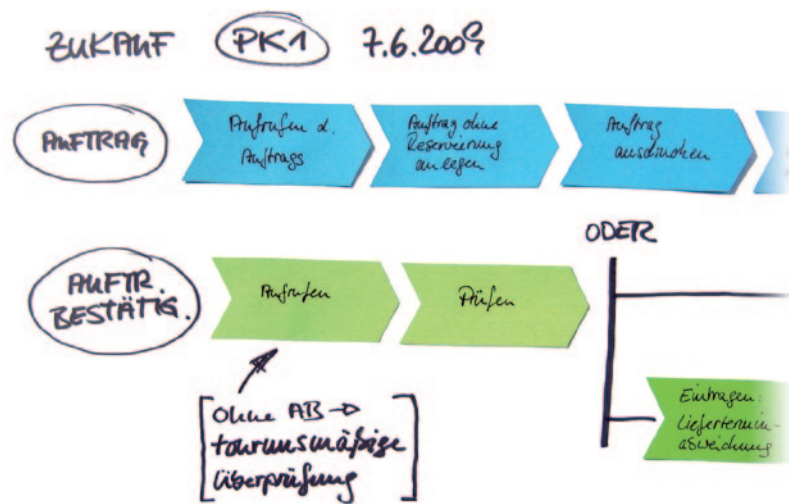 ZUKAUF PK1 7.6.2009
AUFTRAG
Aufrufen d.
Auftrags
Auftrag ohne
Reservierung
anlegen
Auftrag
ausdrucken
ODER
AUFTR.
BESTÄTIG.
Aufrufen
Prüfen
Eintragen:
Liefertermin-
abweichung
[ohne AB →
tournusmäßige
Überprüfung]